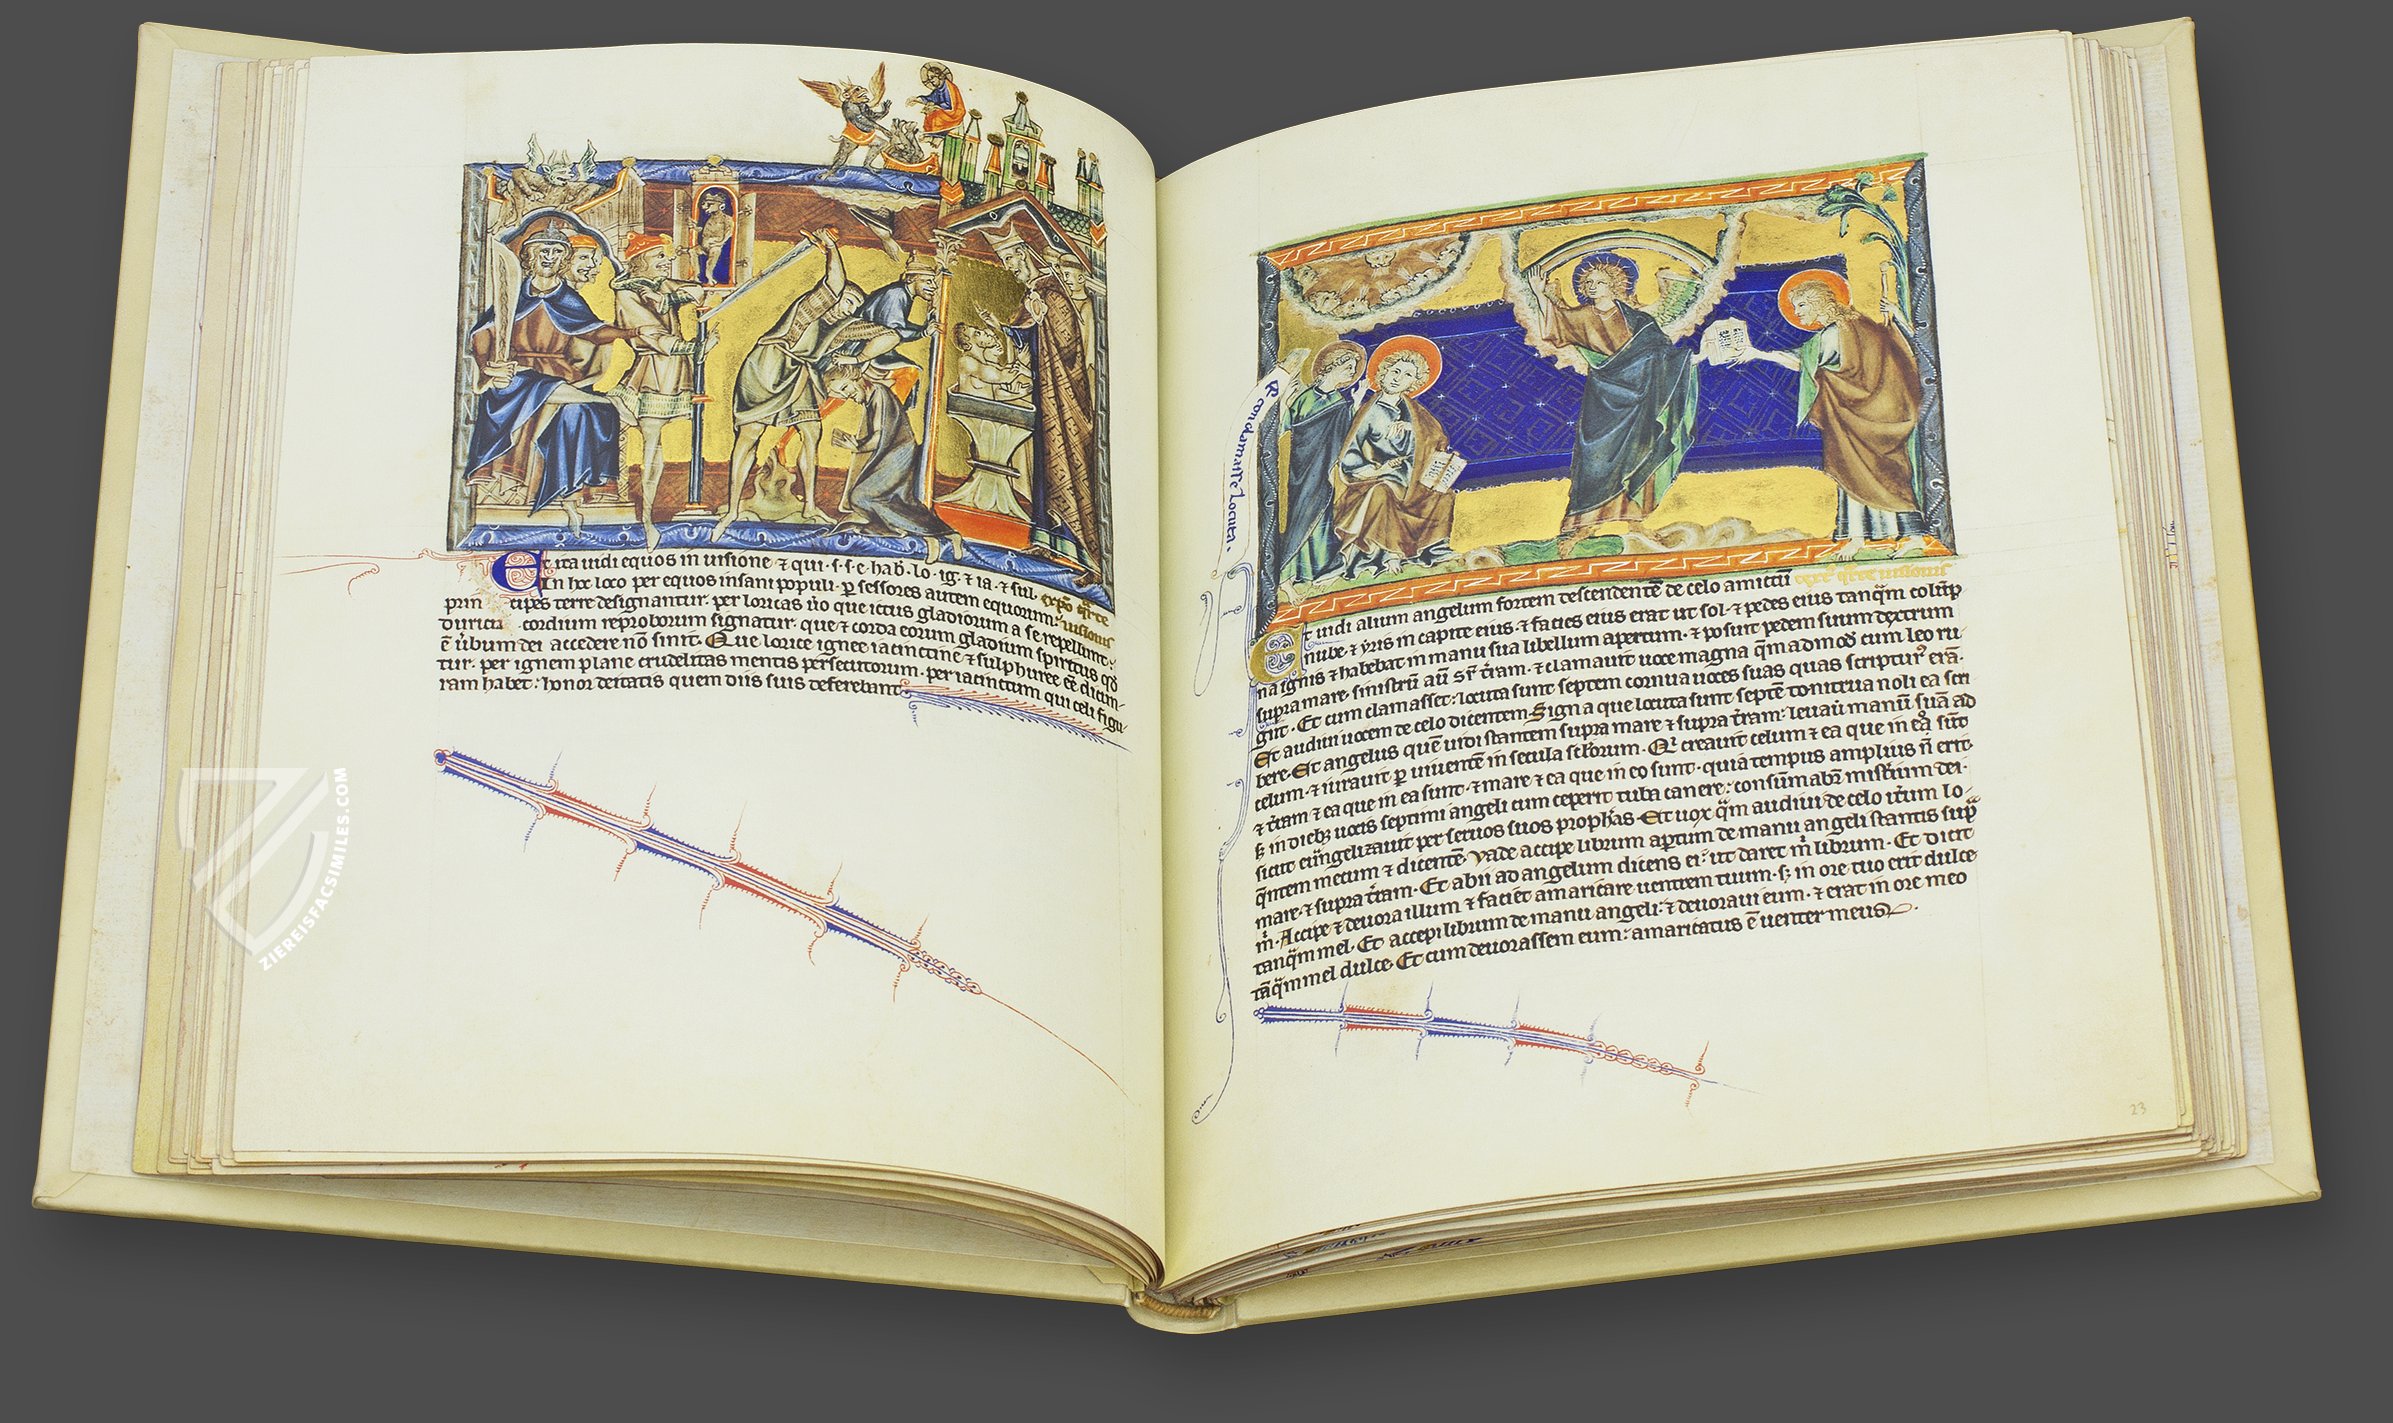 Et ita uidi equos in uisione ⁊ qui · s · s · e · hab̄ · lo · ig · ⁊ ia · ⁊ sul ·
In hoc loco per equos insani populi · ꝑ sessores autem equorum ·
prin cipes terre designantur · per loricas ũo que ictus gladiorum a se repellunt ·
duricia cordium reproborum signatur · que ⁊ corda eorum gladium spiritus qđ
ē ũbum dei accedere nō sinit · Que lorice ignee iacinctine ⁊ sulphuree eē dicun-
tur · per ignem plane crudelitas mentis persecutorum · per iacinctum qui celi figu-
ram habet : honor deitatis quem diis suis deferebant
conclamasse Locuta
Et uidi alium angelum fortem descendentē de celo amictū
nube · ⁊ yris in capite eius · ⁊ facies eius erat ut sol · ⁊ pedes eius tanq̄m colūp
na ignis ⁊ habebat in manu sua libellum apertum · ⁊ posuit pedem suum dextrum
supra mare · sinistrū aū sr̄ t̄ram · ⁊ clamauit uoce magna q̄madmođ cum leo ru-
git · Et cum clamasset : locuta sunt septem cornua uoces suas quas scripturꝰ erā ·
Et audiui uocem de celo dicentem · Signa que locuta sunt septē tonitrua noli ea scri
bere · Et angelus quē uidi stantem supra mare ⁊ supra t̄ram · leuaū manū suā ad
celum · ⁊ iurauit ꝑ uiuentē in secula sc̄lorum · Qͥ creauit celum ⁊ ea que in eo sūt
⁊ t̄ram ⁊ ea que in ea sunt · ⁊ mare ⁊ ea que in eo sunt · quia tempus amplius n̄ erit ·
sꝫ in diebꝫ uocis septimi angeli cum ceperit tuba canere : consūmabr̄ mist̄ium dei ·
sicut euāngelizauit per seruos suos proph̄as · Et uox q̄m audiui de celo it̄um lo-
q̄ntem mecum ⁊ dicentē · Vade accipe librum aꝑtum de manu angeli stantis sup̄
mare · ⁊ supra t̄ram · Et abii ad angelum dicens ei : ut daret m̄ librum · Et dicit
m̄ · Accipe ⁊ deuora illum ⁊ faciet amaricare uentrem tuum · sꝫ in ore tuo erit dulce
tanq̄m mel · Et accepi librum de manu angeli : ⁊ deuoraui eum · ⁊ erat in ore meo
tāq̄m mel dulce · Et cum deuorassem eum : amaricatus ē uenter meus ·
23
ZIEREISFACSIMILES.COM